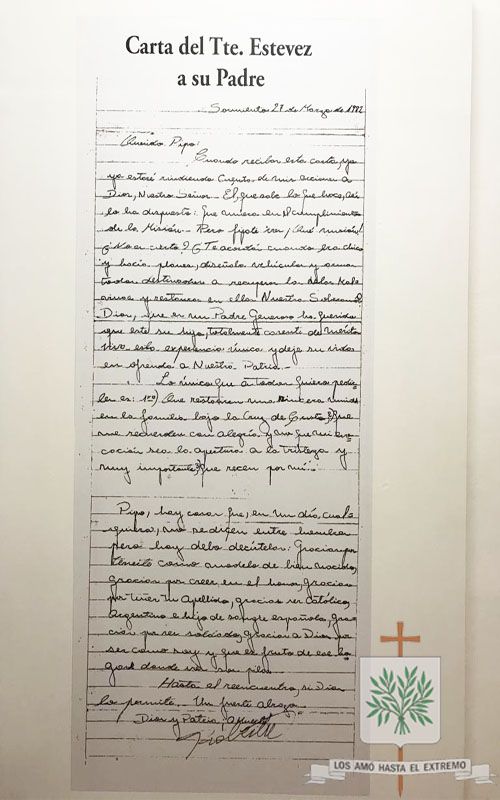 Carta del Tte. Estevez
a su Padre
Sarmiento 27 de Marzo de 1982
Querido Pipo:
Cuando recibas esta carta, yo
ya estaré rindiendo Cuentas de mis acciones a
Dios, Nuestro Señor. El, que sabe lo que hace, así
lo ha dispuesto: que muera en el cumplimiento
de la Misión. Pero fijate vos, ¡Qué misión!
¿No es cierto? ¿Te acordás cuando era chico
y hacía planes, diseñaba vehículos y armas
todos destinados a recuperar las Islas Mal
vinas y restaurar en ellas Nuestra Soberanía?
Dios, que es un Padre Generoso ha querido
que este su hijo, totalmente carente de méritos
viva esta experiencia única y deje su vida
en ofrenda a Nuestra Patria.-
Lo único que a todos quiero pedir
les es: 1º) Que restauren una sincera unidad
en la familia bajo la Cruz de Cristo. 2º) Que
me recuerden con alegría y no que mi evo
cación sea la apertura a la tristeza y
muy importante, 3º) que recen por mí.
Pipo, hay cosas que, en un día cual
quiera, no se dicen entre hombres
pero hoy debo decírtelas: Gracias por
tenerte como modelo de bien nacido,
gracias por creer en el honor, gracias
por tener tu Apellido, gracias ser Católico,
Argentino e hijo de sangre española, gra
cias por ser soldado, gracias a Dios por
ser como soy y que es fruto de ese ho
gar donde vos sos pilar.
Hasta el reencuentro, si Dios
lo permite. Un fuerte abrazo.
Dios y Patria
LOS AMÓ HASTA EL EXTREMO